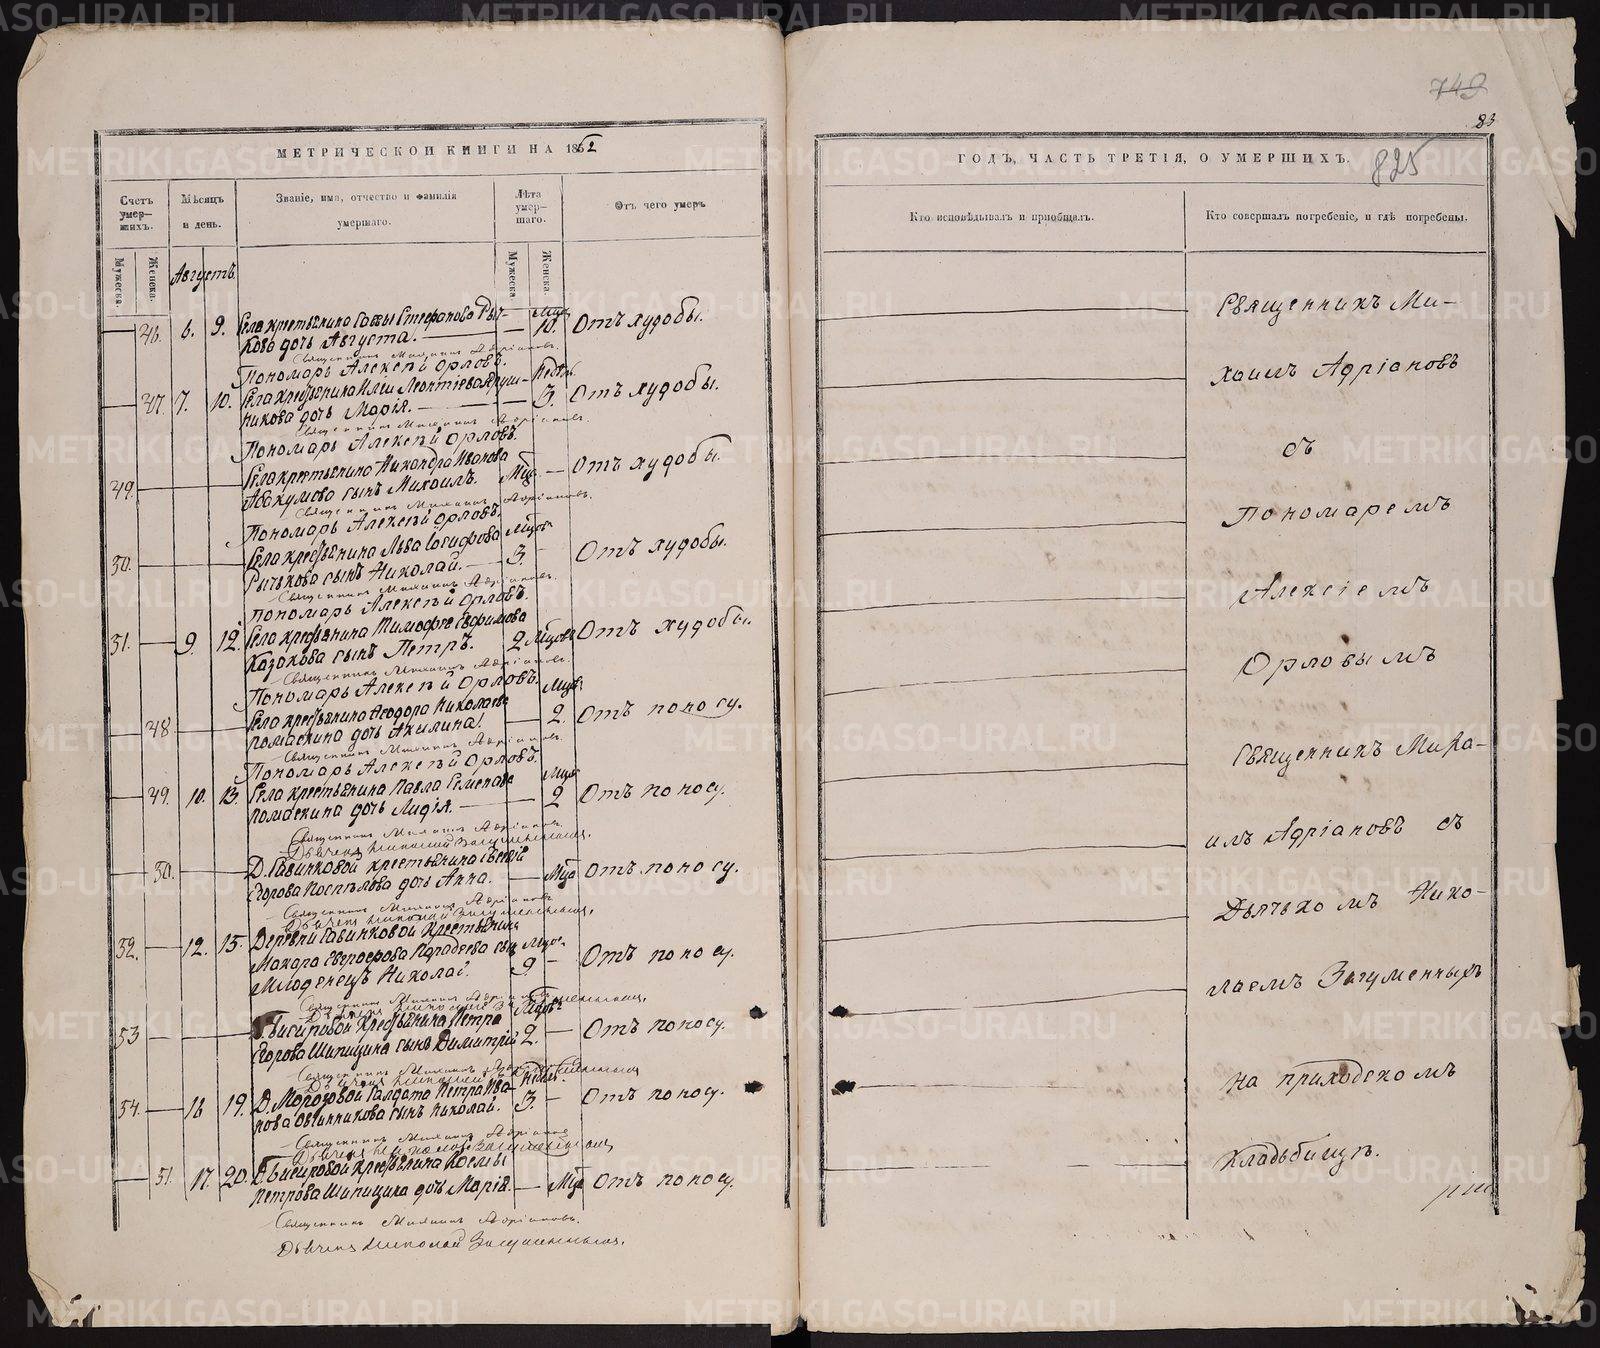 749
83
825
МЕТРИЧЕСКОИ КНИГИ НА 1852
Счетъ умер-шихъ.
Мѣсяцъ и день.
Званіе, имя, отчество и фамилія умершаго.
Лѣта умер-шаго.
Отъ чего умеръ
Мужеска. Женска.
Августъ
Мужеска Женска.
46. 6. 9. Села крестьянина Саввы Стефанова
кова дочь Августа. 10. Отъ худобы.
Священникъ Михаилъ Адріановъ.
Пономарь Алексѣй Орловъ.
47. 7. 10. Села крестьянина Иліи Леонтіева
никова дочь Марія. 3. Отъ худобы.
Священникъ Михаилъ Адріановъ.
Пономарь Алексѣй Орловъ.
49. Села крестьянина Никандра Иванова
Абакумова сынъ Михаилъ. Отъ худобы.
Священникъ Михаилъ Адріановъ.
Пономарь Алексѣй Орловъ.
50. Села крестьянина Льва Іосифова
сынъ Николай. 3. Отъ худобы.
Священникъ Михаилъ Адріановъ.
Пономарь Алексѣй Орловъ.
51. 9. 12. Села крестьянина Тимофея Ефимова
Казакова сынъ Петръ. 2 Отъ худобы.
Священникъ Михаилъ Адріановъ.
Пономарь Алексѣй Орловъ.
48 Села крестьянина Ѳеодора Николаева
Ломаскина дочь Акилина. 2. Отъ поносу.
Священникъ Михаилъ Адріановъ.
Пономарь Алексѣй Орловъ.
49. 10. 13. Села крестьянина Павла
Ломаскина дочь Лидія. 2 Отъ поносу.
Священникъ Михаилъ Адріановъ.
Дьячекъ Николай Загуменныхъ.
50. Д. Савинковой крестьянина
Егорова Поспѣлова дочь Анна. Отъ поносу.
Священникъ Михаилъ Адріановъ
Дьячекъ Николай Загуменныхъ.
52. 12. 15. Деревни Савинковой крестьянина
Макара сынъ
Младенецъ Николай. 9 Отъ поносу.
Священникъ Михаилъ Адріановъ
Дьячекъ Николай Загуменныхъ.
53 крестьянина Петра
Егорова Шипицина сынъ Димитрій 2. Отъ поносу.
Священникъ Михаилъ Адріановъ
Дьячекъ Николай Загуменныхъ
54. 16 19. Д. Морозовой Салдата Петра Ива-
нова Овчинникова сынъ Николай. 3. Отъ поносу.
Священникъ Михаилъ Адріановъ
Дьячекъ Николай Загуменныхъ
51. 17. 20. крестьянина Космы
Петрова Шипицина дочь Марія. Отъ поносу.
Священникъ Михаилъ Адріановъ.
Дьячекъ Николай Загуменныхъ.
ГОДЪ, ЧАСТЬ ТРЕТІЯ, О УМЕРШИХЪ.
Кто исповѣдывалъ и пріобщалъ.
Кто совершалъ погребеніе, и гдѣ погребены.
Священникъ Ми-
хаилъ Адріановъ
съ
Пономаремъ
Алексіемъ
Орловымъ
Священникъ Миха-
илъ Адріановъ съ
Дьячькомъ Нико-
лаемъ Загуменныхъ
на приходскомъ
Кладьбищѣ.
METRIKI.GASO-URAL.RU